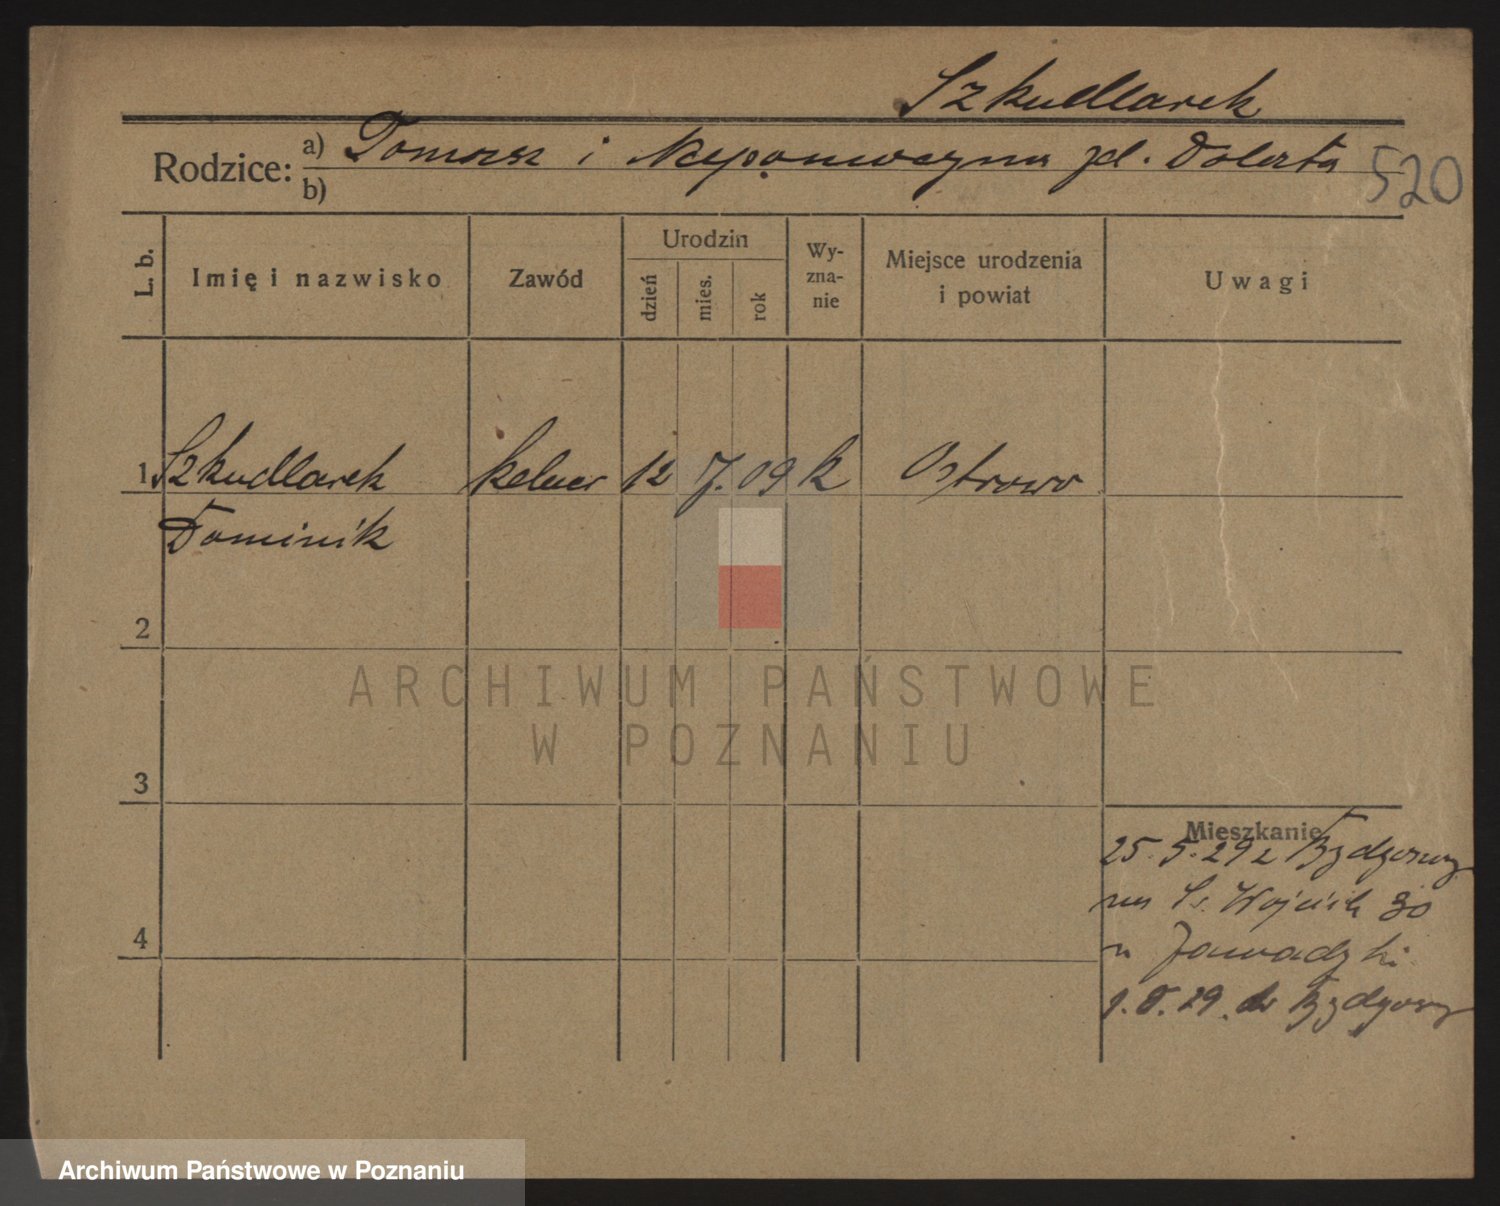 Szkudlarek
Rodzice: a) Tomasz i Nepomucyna zd. Dolata
b)
520
L. b.
Imię i nazwisko
Zawód
Urodzin
dzień
mies.
rok
Wy-
zna-
nie
Miejsce urodzenia
i powiat
Uwagi
1 Szkudlarek kelner 12 7. 09 k Ostrowo
Dominik
2
3
4
Mieszkanie
25. 5. 29 z Bydgoszczy
na Św. Wojciech 30
u
29. do Bydgoszczy
ARCHIWUM PAŃSTWOWE
W POZNANIU
Archiwum Państwowe w Poznaniu